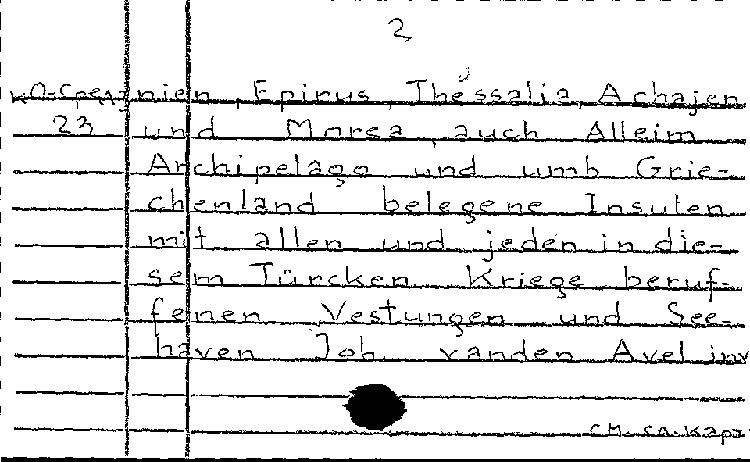 2
nien, Epirus, Théssalia, Achajen
23 und Morea, auch Alleim
Archipelago und umb Grie-
chenland belegene Insulen
mit allen und jeden in die-
sem Türcken Kriege beruf-
fenen Vestungen und See-
haven Joh. vanden Avel inv